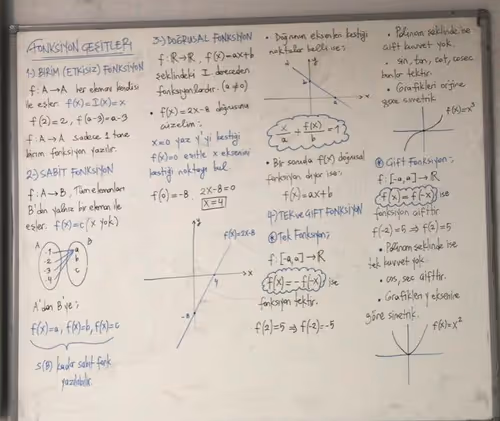 FONKSİYON ÇEŞİTLERİ
1-) BİRİM (ETKİSİZ) FONKSİYON
f: A → A her elemanı kendisi
ile eşler. f(x) = I(x) = x
f(2) = 2, f(a-3) = a-3
f: A → A sadece 1 tane
birim fonksiyon yazılır.
2-) SABİT FONKSİYON
f: A → B, Tüm elemanları
B'den yalnız bir eleman ile
eşler. f(x) = c (x yok)
A B
1 a
2 b
3 c
4
A'dan B'ye;
f(x) = a, f(x) = b, f(x) = c
s(B) kadar sabit fonk
yazılabilir.
3-) DOĞRUSAL FONKSİYON
f: R → R, f(x) = ax+b
şeklindeki I. dereceden
fonksiyonlardır. (a ≠ 0)
• f(x) = 2x-8 doğrusunu
çizelim:
x=0 yaz y'yi kestiği
f(x)=0 eşitle x eksenini
kestiği noktayı bul.
f(0) = -8, 2x-8=0
x=4
y
f(x)=2x-8
x
4
-8
• Doğrunun eksenleri kestiği
noktalar belli ise:
y
b
a
x
x/a + f(x)/b = 1
• Bir soruda f(x) doğrusal
fonksiyon diyor ise:
f(x) = ax+b
4-) TEK ve ÇİFT FONKSİYON
Tek Fonksiyon;
f: [-a,a] → R
f(x) = -f(-x) ise
fonksiyon tektir.
f(2) = 5 ⇒ f(-2) = -5
• Polinom şeklinde ise
çift kuvvet yok.
• sin, tan, cot, cosec
bunlar tektir.
• Grafikleri orjine
göre simetrik
f(x)=x³
Çift Fonksiyon;
f: [-a,a] → R
f(x) = f(-x) ise
fonksiyon çifttir
f(-2) = 5 ⇒ f(2) = 5
• Polinom şeklinde ise
tek kuvvet yok.
• cos, sec çifttir.
• Grafikleri y eksenine
göre simetrik.
f(x) = x²